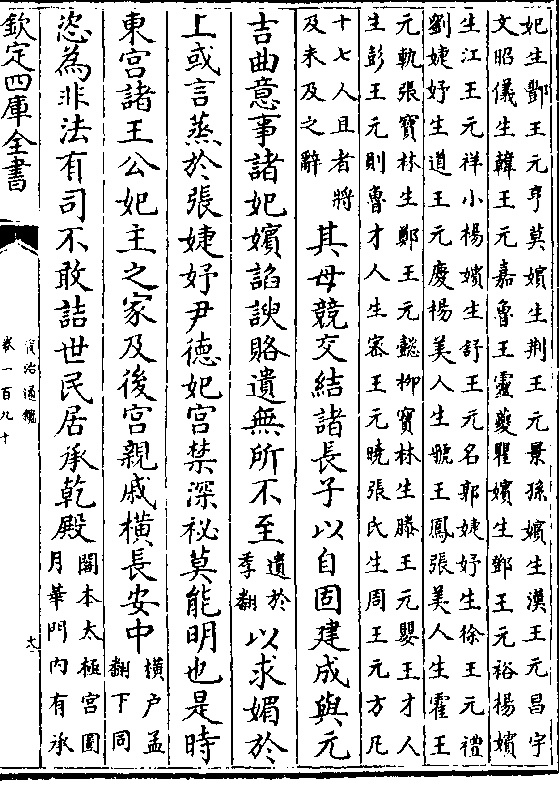 妃生酆王元亨莫嬪生荆王元景孫嬪生漢王元昌宇
文昭儀生韓王元嘉魯王靈夔瞿嬪生鄧王元裕楊嬪
生江王元祥小楊嬪生舒王元名郭婕妤生徐王元禮
劉婕妤生道王元慶楊美人生虢王鳳張美人生霍王
元軌張寶林生鄭王元懿柳寶林生滕王元嬰王才人
生彭王元則魯才人生宻王元曉張氏生周王元方凡
十七人且者將
及未及之辭
其母競交結諸長子以自固建成與元
吉曲意事諸妃嬪諂諛賂遺無所不至
遺於
季翻
以求媚於
上或言蒸於張婕妤尹德妃宫禁深祕莫能明也是時
東宫諸王公妃主之家及後宫親戚橫長安中
橫户孟
翻下同
恣為非法有司不敢詰世民居承乾殿
閣本太極宫圖
月華門内有承
欽定四庫全書
資治通鑑
卷一百九十